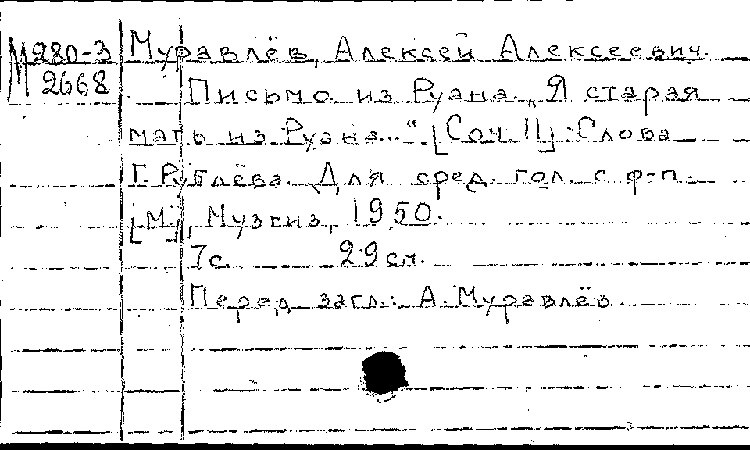 М280-3
М 2668
Муравлёв, Алексей Алексеевич.
Письмо из Руана „Я старая
мать из Руана..." [Соч. 11] Слова
Г. Рублёва. Для сред. гол. с ф-п.
[М.], Музгиз, 1950.
7 с. 29 см.
Перед загл.: А. Муравлёв.